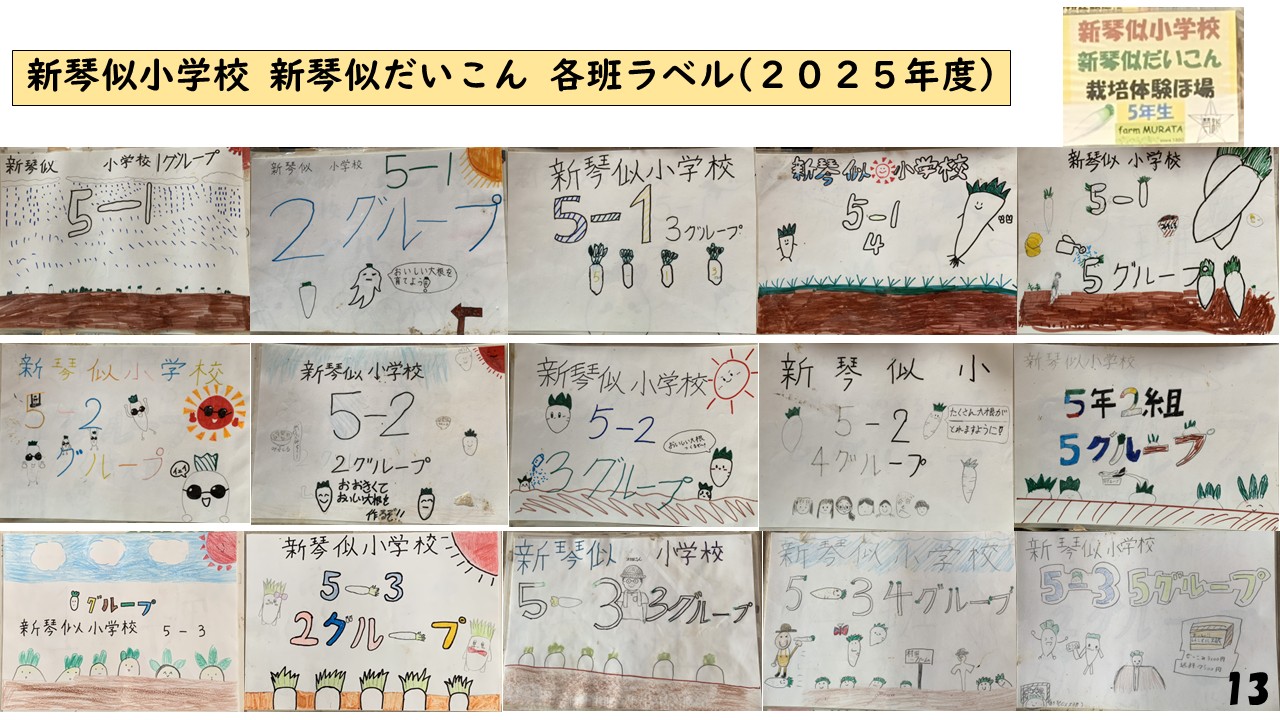 新琴似小学校 新琴似だいこん 各班ラベル(2025年度)
新琴似小学校
新琴似だいこん
栽培体験ほ場
5年生
farm MURATA
新琴似 小学校 1グループ
5-1
新琴似 小学校 5-1
2グループ
おいしい大根を
育てよう
新琴似小学校
5-1 3グループ
新琴似小学校
5-1
4
新琴似 小学校
5-1
5グループ
新琴似小学校
5-2
グループ
新琴似小学校
5-2
2グループ
おおきくて
おいしい大根を
作るぞ!!
新琴似小学校
5-2
おいしい大根
3グループ
新琴似小
5-2
たくさん大根が
とれますように!!
4グループ
新琴似小学校
5年2組
5グループ
グループ
新琴似小学校 5-3
新琴似小学校
5-3
2グループ
新琴似 小学校
5-3 3グループ
新琴似小学校
5-3 4グループ
新琴似小学校
5-3 5グループ
13